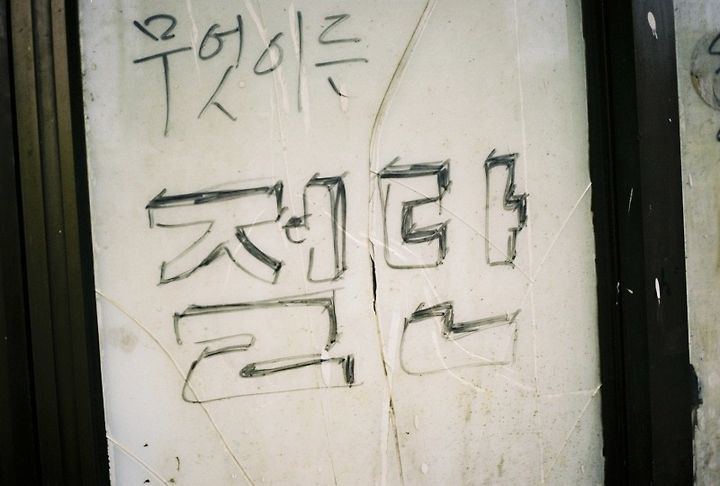 무엇이든
절단